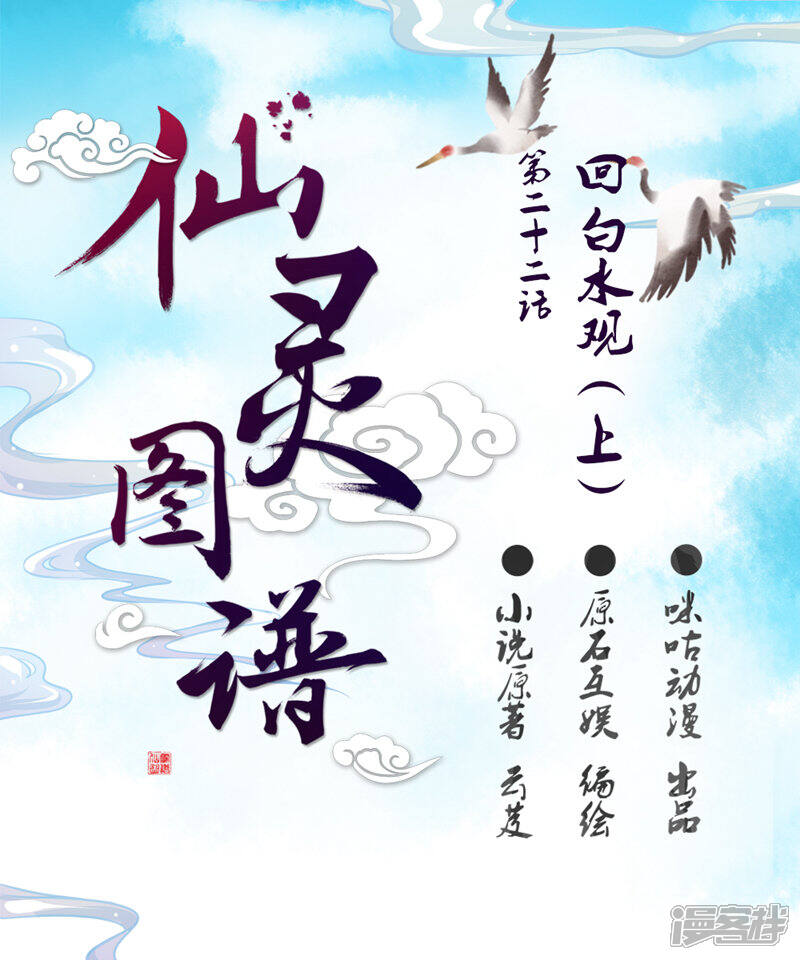 仙灵图谱
回白水观（上）
第二十二话
咪咕动漫 出品
原石互娱 编绘
小说原著 云芨
漫客栈